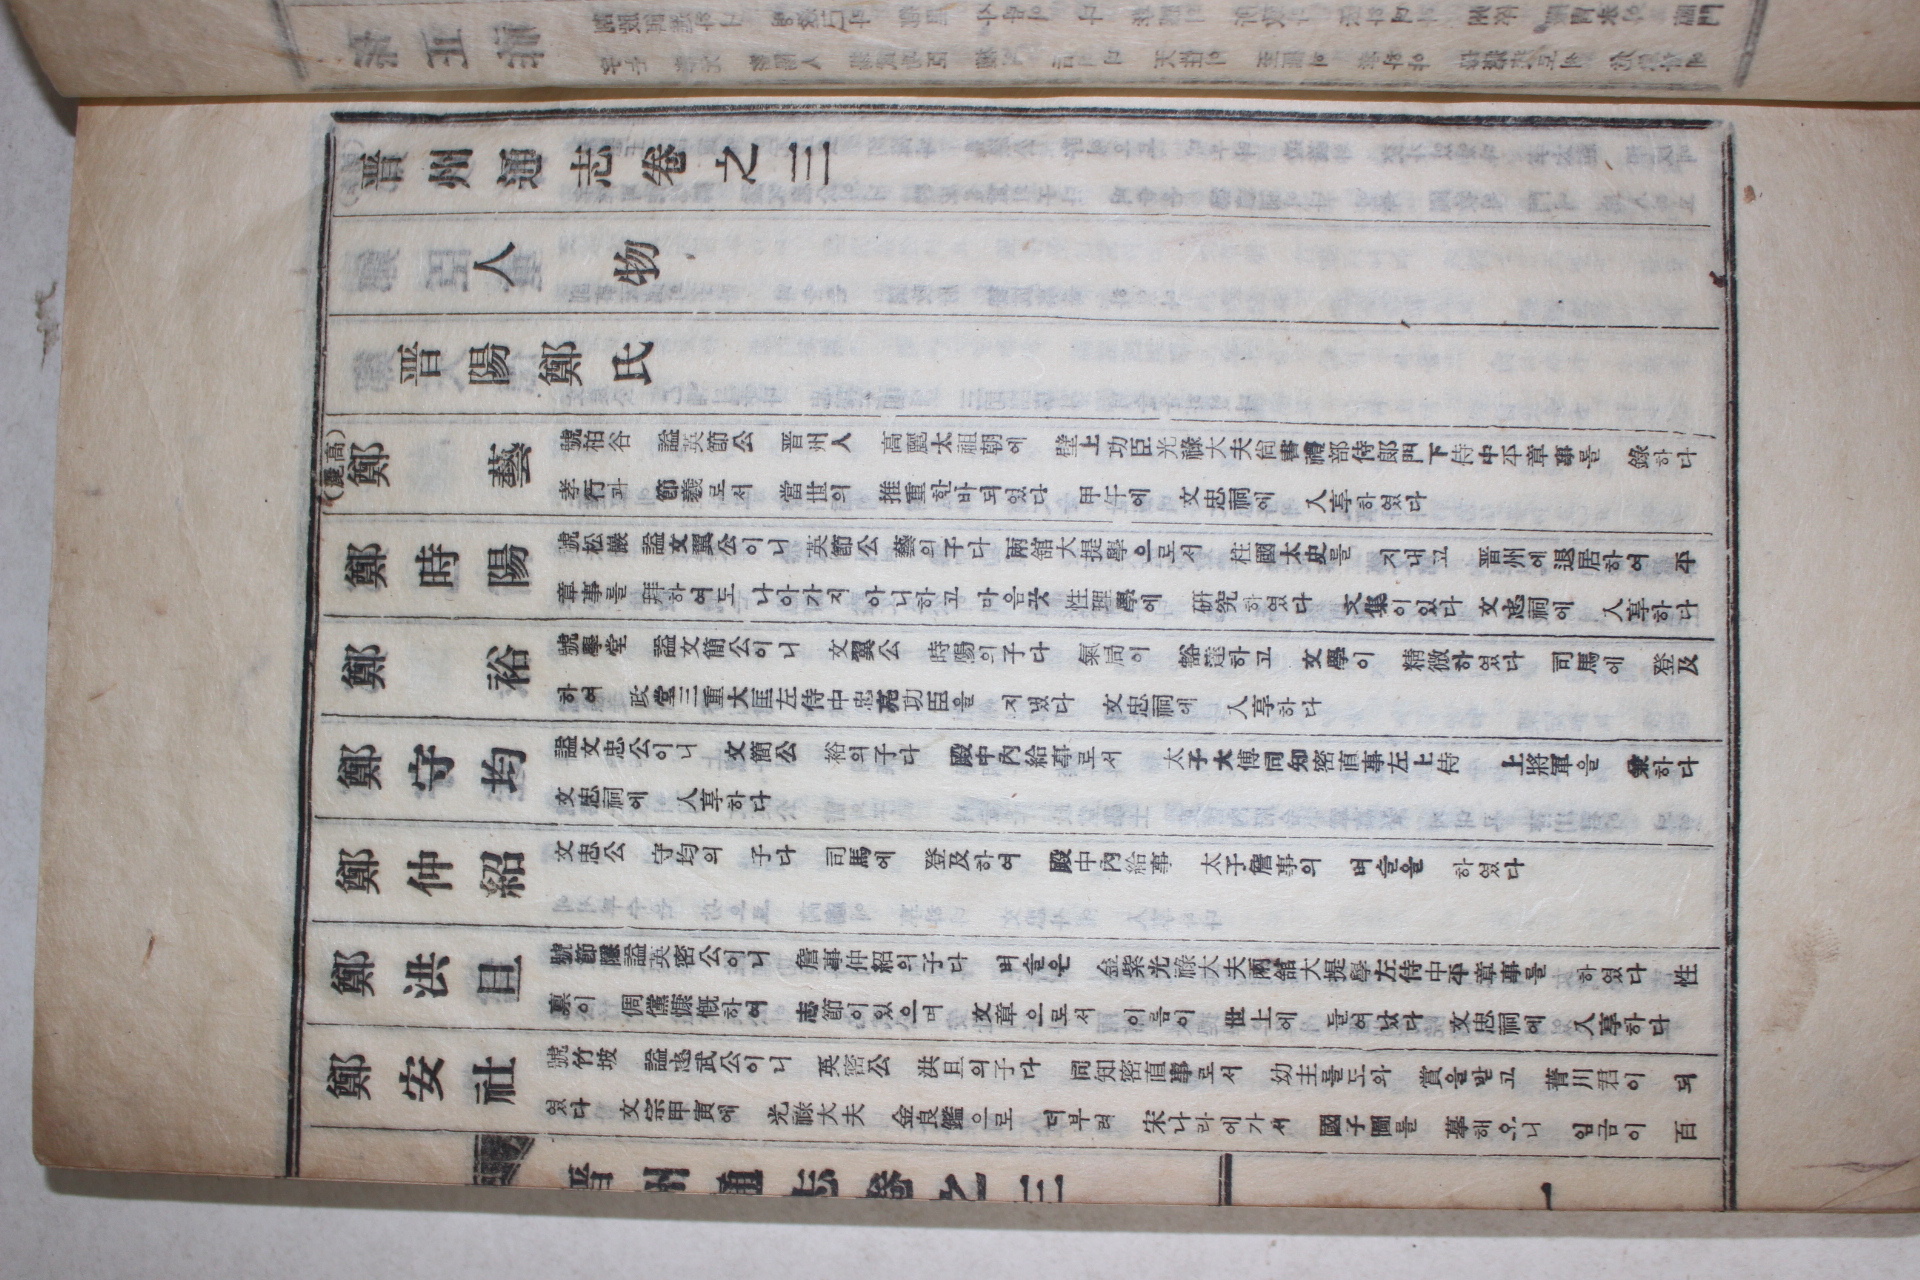 晋州通志卷之三
人物
晋陽鄭氏
(高麗)
鄭藝
號栢谷 謚英節公 晋州人 高麗太祖朝에 壁上功臣光祿大夫尙書禮部侍郞門下侍中平章事를 錄하다
孝行과 節義로서 當世의 推重한바되엿다 甲午에 文忠祠에 入享하엿다
鄭時陽
號松巖 謚文翼公이니 英節公 藝의子다 兩舘大提學으로서 柱國太史를 지내고 晋州에退居하여 平
章事를 拜하여도 나아가지 아니하고 마음끗 性理學에 硏究하엿다 文集이잇다 文忠祠에 入享하다
鄭裕
號學堂 謚文簡公이니 文翼公 時陽의子다 氣局이 豁達하고 文學이 精微하엿다 司馬에 登及
하여 政堂三重大匡左侍中忠亮功臣을 지냇다 文忠祠에 入享하다
鄭守均
謚文忠公이니 文簡公 裕의子다 殿中內給事로서 太子大傅同知密直事左上侍 上將軍을 兼하다
文忠祠에 入享하다
鄭仲紹
文忠公 守均의 子다 司馬에 登及하여 殿中內給事 太子詹事의 버슬을 하엿다
鄭洪旦
號節隱謚英密公이니 詹事仲紹의子다 버슬은 金紫光祿大夫兩舘大提學左侍中平章事를 하엿다 性
禀이 倜儻慷慨하여 志節이잇으며 文章으로서 이름이 世上에 들어낫다 文忠祠에 入享하다
鄭安社
號竹坡 謚忠武公이니 英密公 洪旦의子다 同知密直事로서 幼主를도와 賞을받고 菁川君이 되
엿다 文宗甲寅에 光祿大夫 金良鑑으로 더부러 宋나라에가서 國子圖를 摹해오니 임금이 百
晋州通志卷之三
一